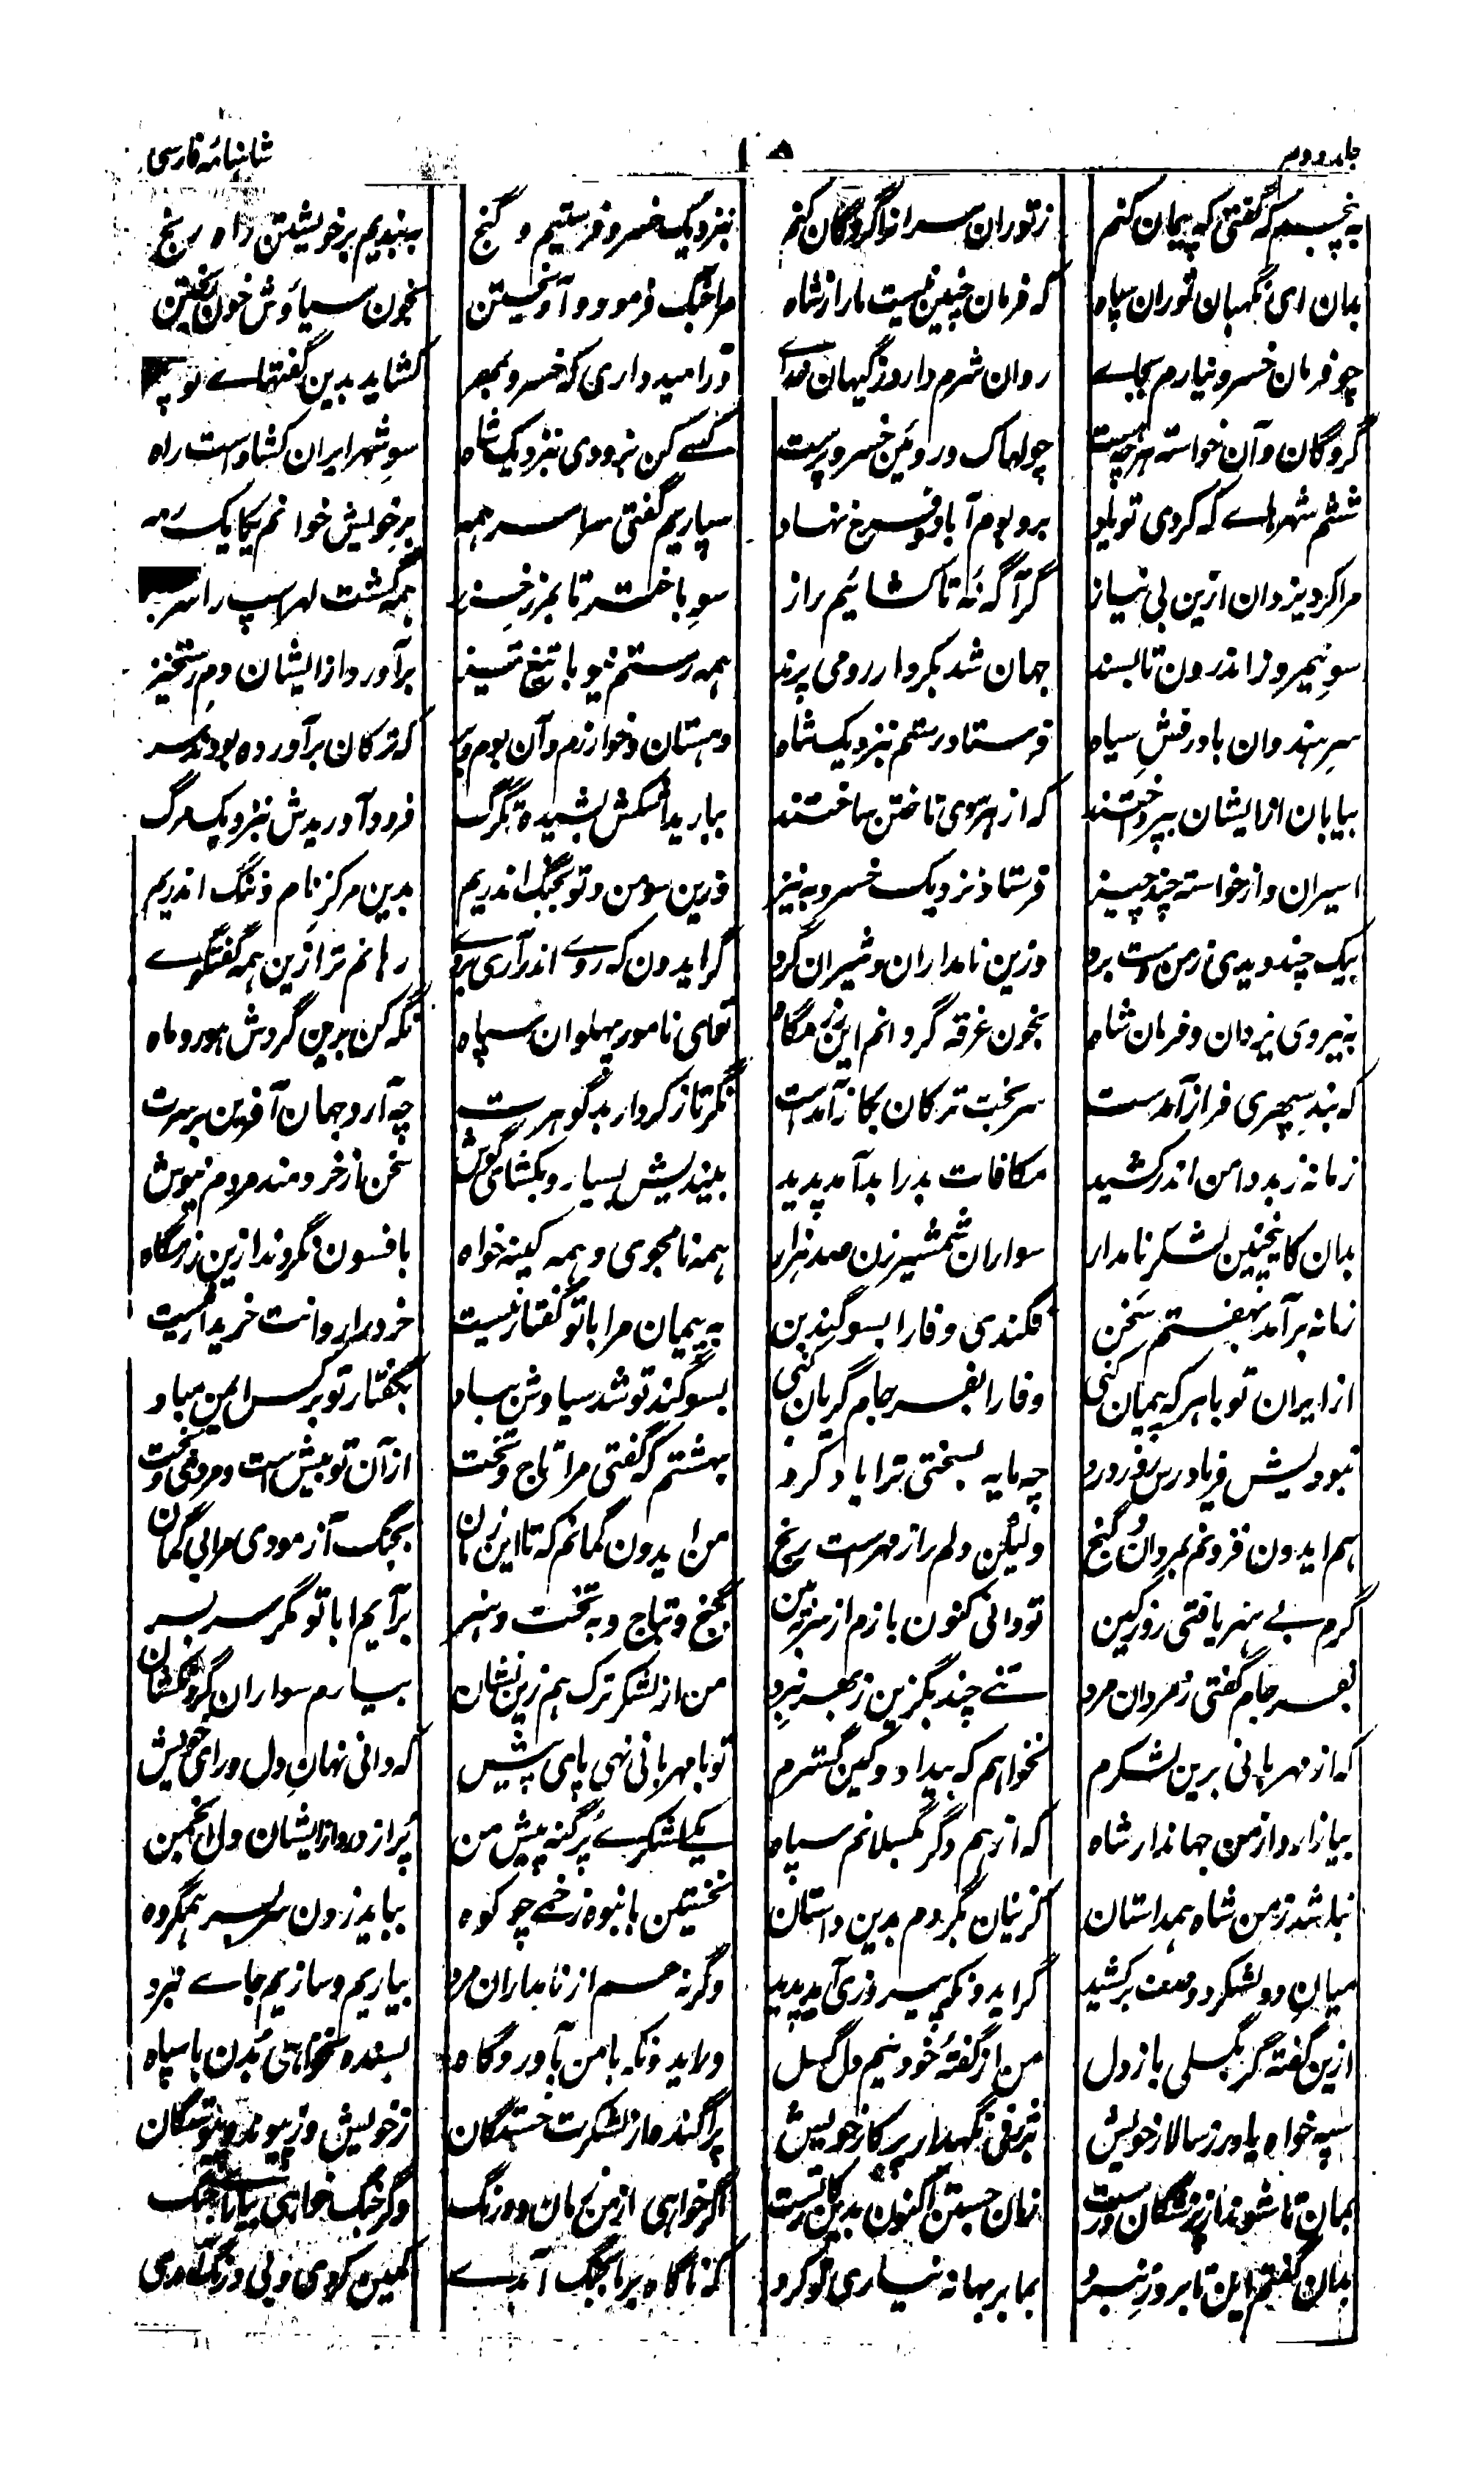 جلد دوم ۸۱ شاہنامہ فارسی
به پنجم که گفتی که پیمان کنم ز توران سران را گروگان کنم بنزدیک خسرو فرستیم و گنج ببندیم بر خویشتن راه رنج
بدان ای نگهبان توران سپاه که فرمان چنین نیست ما را ز شاه مرا جنگ فرمود و آویختن بخون سیاوش خون ریختن
چو فرمان خسرو نیارم بجاے روان شرم دارد ز گیهان خداے ور امید داری که خسرو بمهر کشاید بدین گفتهاے تو چهر
گروگان و آن خواسته هرچه هست چو لهاک و روئین خسرو پرست کسے کن برودی بنزدیک شاه سوِ شهر ایران کشادست راه
ششم شهرهاے که کردی تو یاد بر و بوم آباد و فرخ نهاد سپاریم گفتی سراسر همه بر خویش خوانم یکایک رمه
مرا کرد یزدان ازین بی نیاز گر آگه نهٔ تا کشائیم راز سوِ باختر تا بمرز خزر همه گشت لهراسپ را سربسر
سوِ نیمروز اندرون تا بسند جهان شد بکردار رومی پرند همه رستم نیو با تیغ تیز برآورد از ایشان دم رستخیز
سرِ هندوان با درفشِ سیاه فرستاد رستم بنزدیک شاه دهستان و خوارزم و آن بوم و بر که ترکان برآورده بودند سر
بیابان از ایشان بپرداختند که از هر سوی تاختن ساختند ببارید اشکش بشیده تگرگ فرود آوریدش بنزدیک مرگ
اسیران و از خواسته چند چیز فرستاد نزدیک خسرو به نیز وزین سو من و تو بجنگ اندریم بدین مرکز نام و ننگ اندریم
بیک چند دیدی ز من دست برد وزین نامداران و شیران گرد گر ایدون که روے اندر آری بروے رهانم ترا زین همه گفتگوے
به نیروی یزدان و فرمان شاه بخون غرقه گردانم این رزمگاه تو ای نامور پهلوان سپاه نگه کن برین گردش هور و ماه
که بند سپهری فراز آمدست سر بخت ترکان بگاز آمدست نگر تا ز کردار بدگوهرت چه آرد جهان آفرین بر سرت
زمانه ز بد دامن اندر کشید مکافات بد را بد آمد پدید بیندیش بسیار و بکشای گوش سخن از خردمند مردم نیوش
بدان کاینچنین لشکر نامدار سواران شمشیر زن صد هزار همه نامجوی و همه کینه خواه بافسون نگروند ازین رزمگاه
زمانه برآمد بهفتم سخن فکندی وفا را بسوگند بن به پیمان مرا با تو گفتار نیست خرد مر روانت خریدار نیست
از ایران تو با هر که پیمان کنی وفا را بفرجام گریان کنی بسوگند تو شد سیاوش بباد بگفتار تو بر کس ایمن مباد
نبودیش فریادرس روز درد چه مایه بسختی ترا یاد کرد بهشتم که گفتی مرا تاج و تخت از آن تو بیش است و مردی و بخت
هم ایدون فزونم بمردان و گنج ولیکن دلم را ز مهرست رنج من ایدون گمانم که تا این زمان بجنگ آزمودی مرا بی گمان
گرم بے هنر یافتی روز کین تو دانی کنون بازم از سر ببین بگنج و بتاج و به تخت و هنر برآیم ابا تو مگر سربسر
بفرجام گفتی ز مردان مرد تنے چند بگزین ز بهر نبرد من از لشکر ترک هم زین نشان بیارم سواران گردنکشان
که از مهربانی برین لشکرم نخواهم که بیداد و کین گسترم تو با مهربانی نهی پای پیش که دانی نهانِ دل و رای خویش
بیازارد از من جهاندار شاه که از هم دگر بگسلانم سپاه یکے لشکرے پُر گنه پیش من پُر از درد از ایشان دل انجمن
نباشد ز من شاه همداستان کزینان بگردم بدین داستان نخستین بانبوه زخمے چو کوه بباید زدن سربسر همگروه
میان دو لشکر دو صف برکشید گر ایدونکه پیروزی آید پدید وگرنه هم از نامداران مرد بیاریم و سازیم جاے نبرد
ازین گفته گر بگسلی باز دل من از گفتهٔ خود نیم دل گسل ور ایدونکه با من بآوردگاه بسنده نخواهی بدن با سپاه
سپه خواه و یاور ز سالار خویش بژرفی نگهدار پرکار خویش پراگنده از لشکرت خستگان ز خویش و ز پیوند و پیوستگان
بمان تا شوند از پزشکان درست زمان جستن اکنون بدین کار تست اگر خواهی از من زمان و درنگ وگر جنگ خواهی بیارای جنگ
بدان گفتم این تا بروز نبرد بما بر بهانه نیاری تو کرد که ناگاه بر ما بجنگ آمدے کمین کردی و بی درنگ آمدی